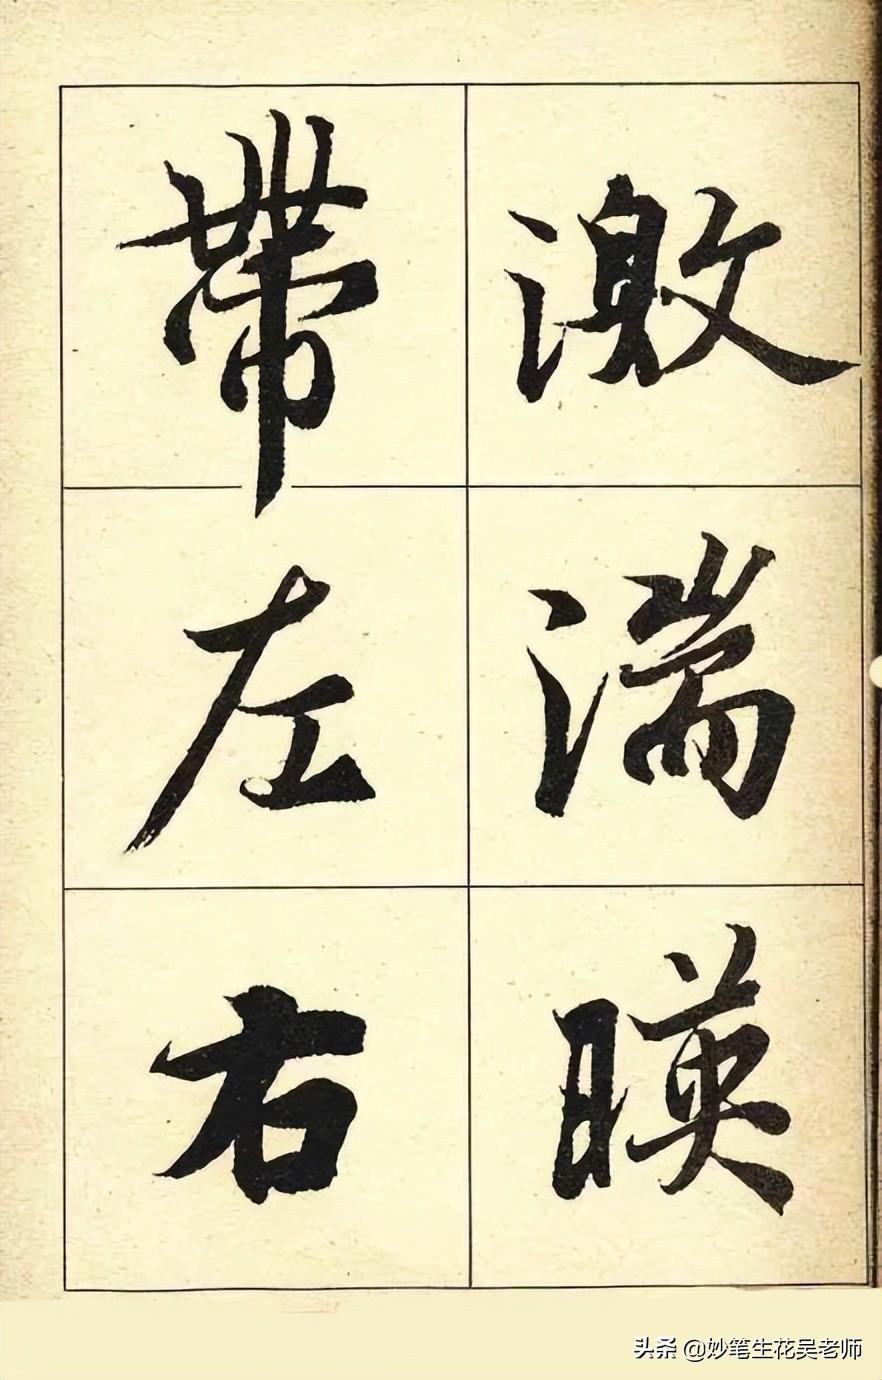 激湍暎
帶左右
头条 @妙笔生花吴老师